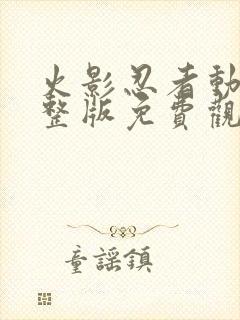 火影忍者動
整版免費觀
童謠鎮